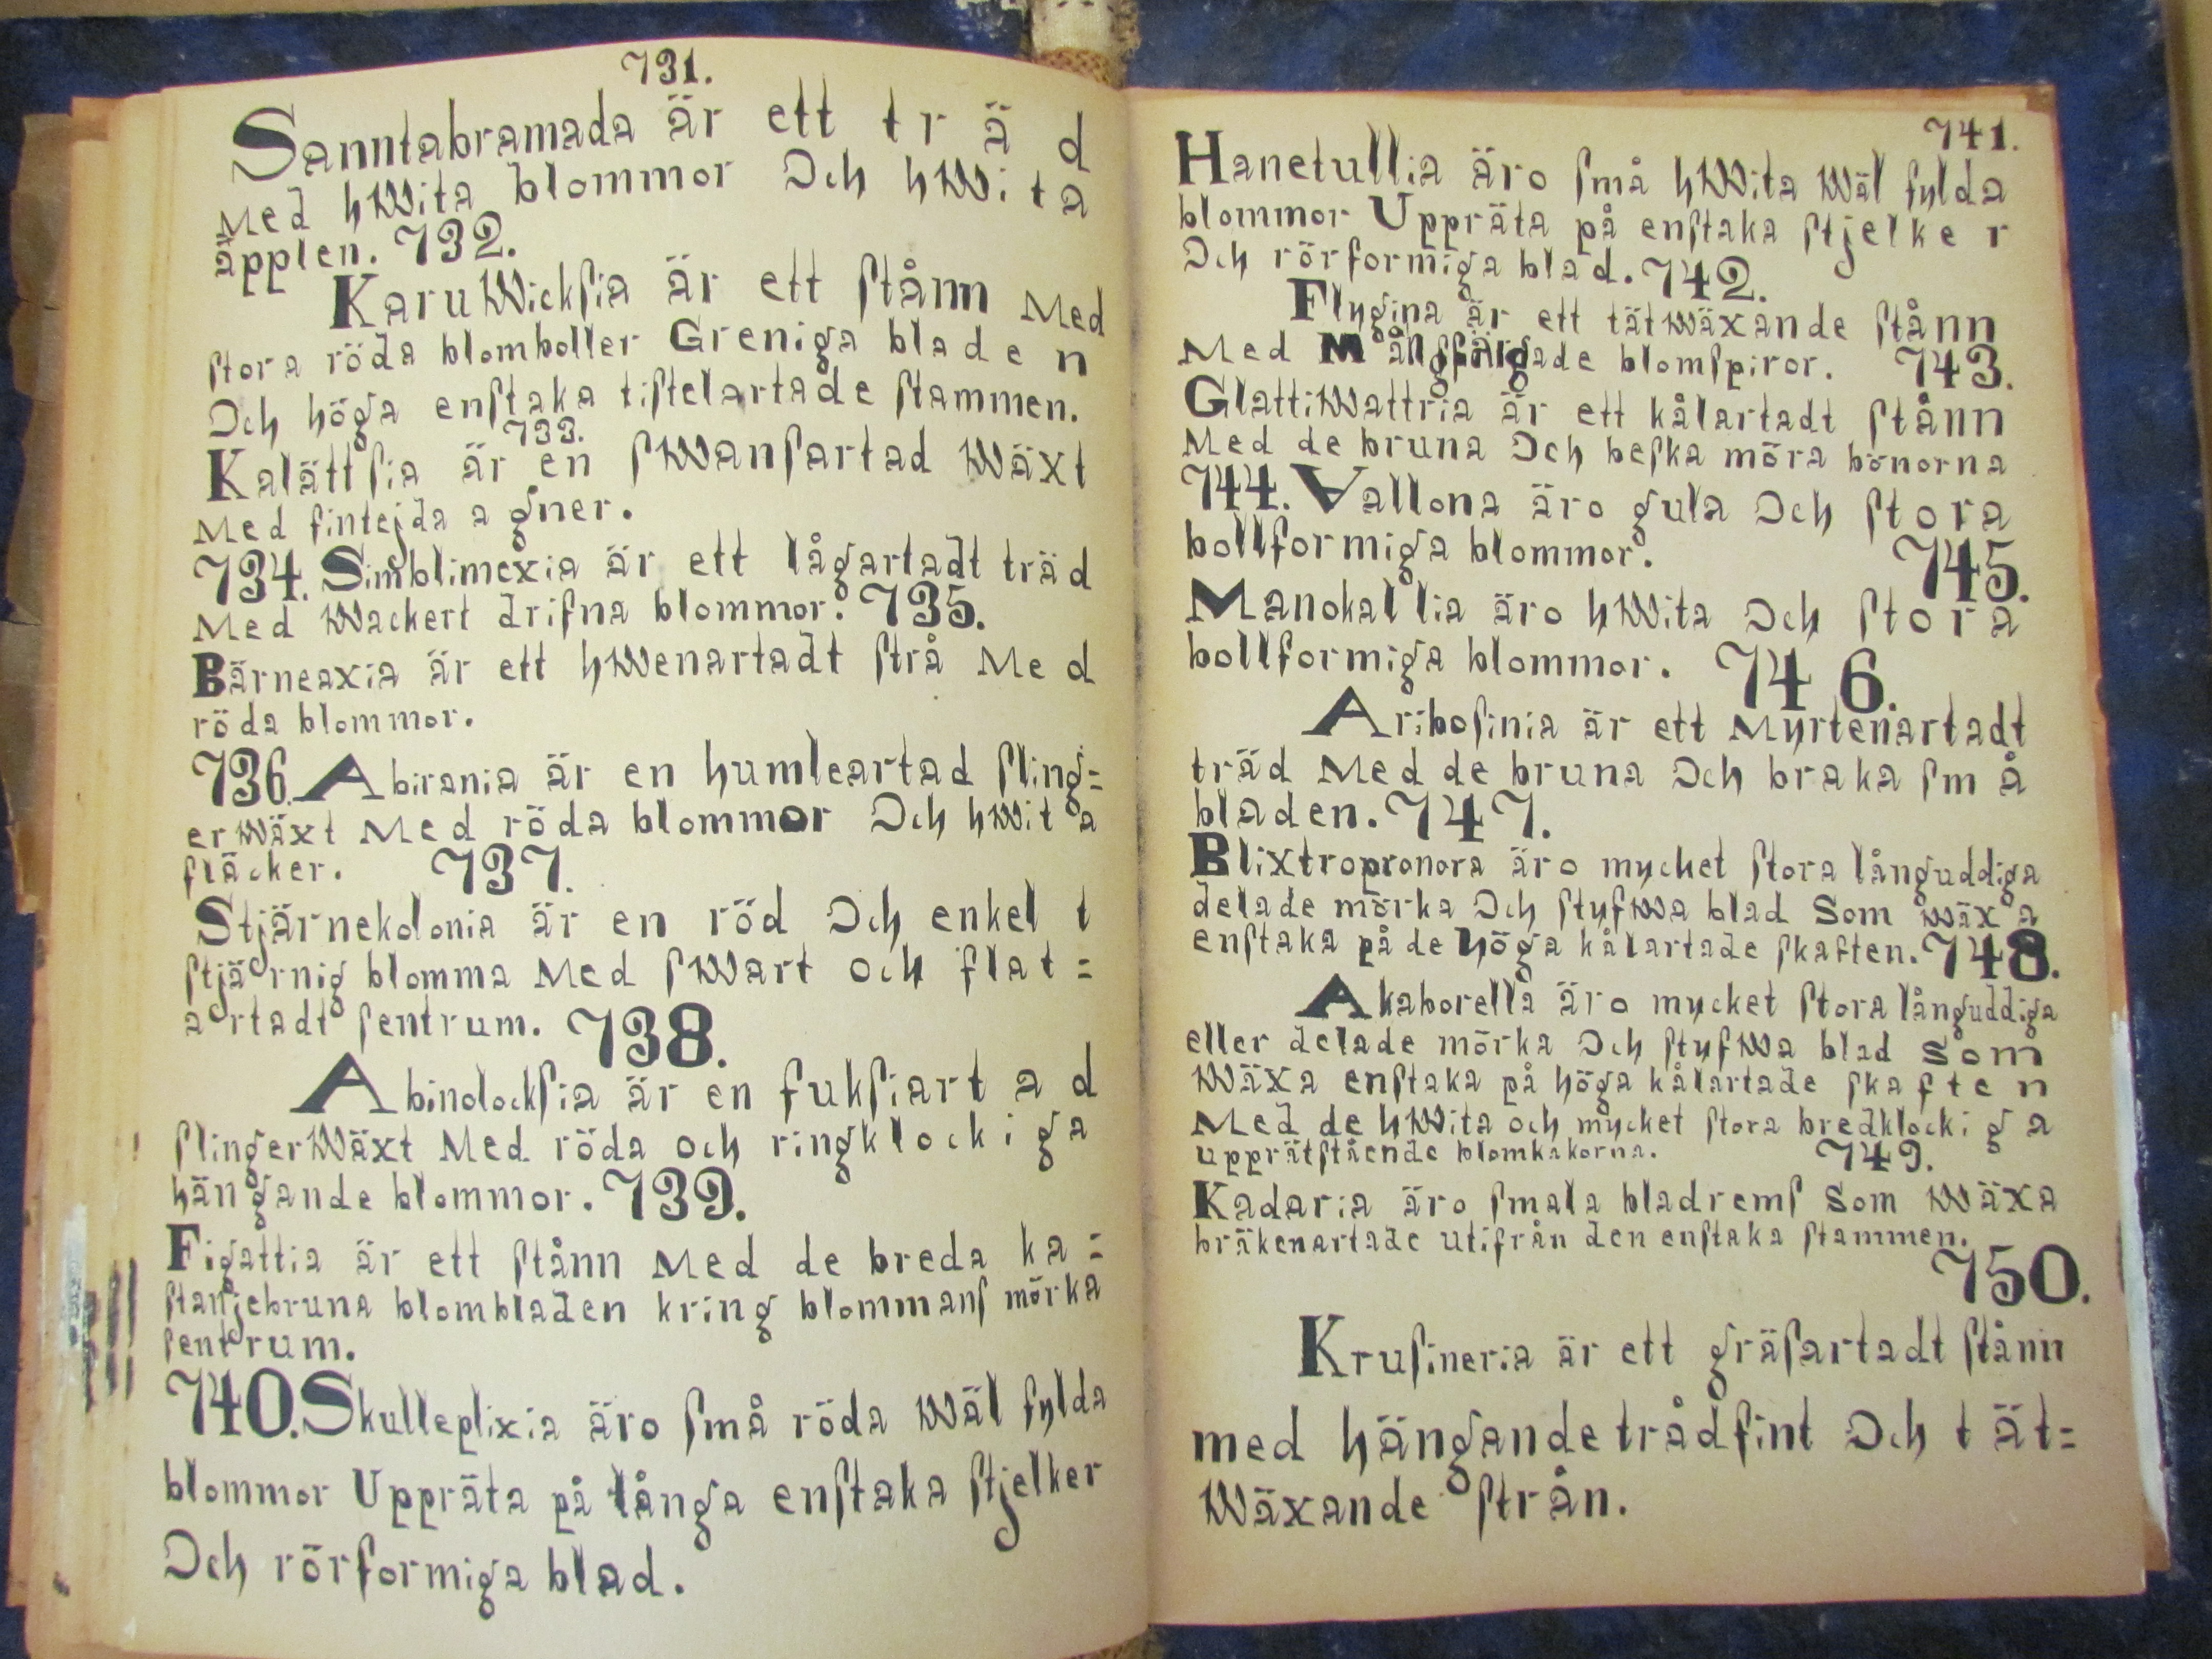 731.
Sanntabramada är ett träd
Med hWita blommor Och hWita
äpplen. 732.
KaruWickſia är ett ſtånn Med
ſtora röda blomboller Greniga bladen
Och höga enſtaka tiſtelartade ſtammen.
733.
Kalättſia är en ſWanſartad Wäxt
Med fintejda agner.
734. Simblimexia är ett lågartadt träd
Med Wackert drifna blommor. 735.
Bärneaxia är ett hWenartadt ſtrå Med
röda blommor.
736. Abirania är en humleartad ſling=
erWäxt Med röda blommor Och hWita
fläcker. 737.
Stjärnekolonia är en röd Och enkelt
ſtjärnig blomma Med ſWart och flat=
artadt ſentrum. 738.
Abinolockſia är en fukſiartad
ſlingerWäxt Med röda och ringklockiga
hängande blommor. 739.
Figattia är ett ſtånn Med de breda ka=
ſtanjebruna blombladen kring blommanſ mörka
ſentrum.
740. Skulleplixia äro ſmå röda Wäl fylda
blommor Uppräta på långa enſtaka ſtjelker
Och rörformiga blad.
741.
Hanetullia äro ſmå hWita Wäl fylda
blommor Uppräta på enſtaka ſtjelker
Och rörformiga blad. 742.
Flygina är ett tätWäxande ſtånn
Med Mångfärgade blomſpiror. 743.
GlattiWattria är ett kålartadt ſtånn
Med de bruna Och beſka möra bönorna
744. Vallona äro gula Och ſtora
bollformiga blommor. 745.
Manokallia äro hWita Och ſtora
bollformiga blommor. 746.
Ariboſinia är ett Myrtenartadt
träd Med de bruna Och braka ſmå
bladen. 747.
Blixtropronora äro mycket ſtora långuddiga
delade mörka Och ſtyfWa blad Som Wäxa
enſtaka på de höga kålartade ſkaften. 748.
Akaborella äro mycket ſtora långuddiga
eller delade mörka Och ſtyfWa blad Som
Wäxa enſtaka på höga kålartade ſkaften
Med de hWita och mycket ſtora bredklockiga
upprätſtående blomkakorna. 749.
Kadaria äro ſmala bladremſ Som Wäxa
bräkenartade utifrån den enſtaka ſtammen.
750.
Kruſineria är ett gräſartadt ſtånn
med hängande trådfint Och tät=
Wäxande ſtrån.